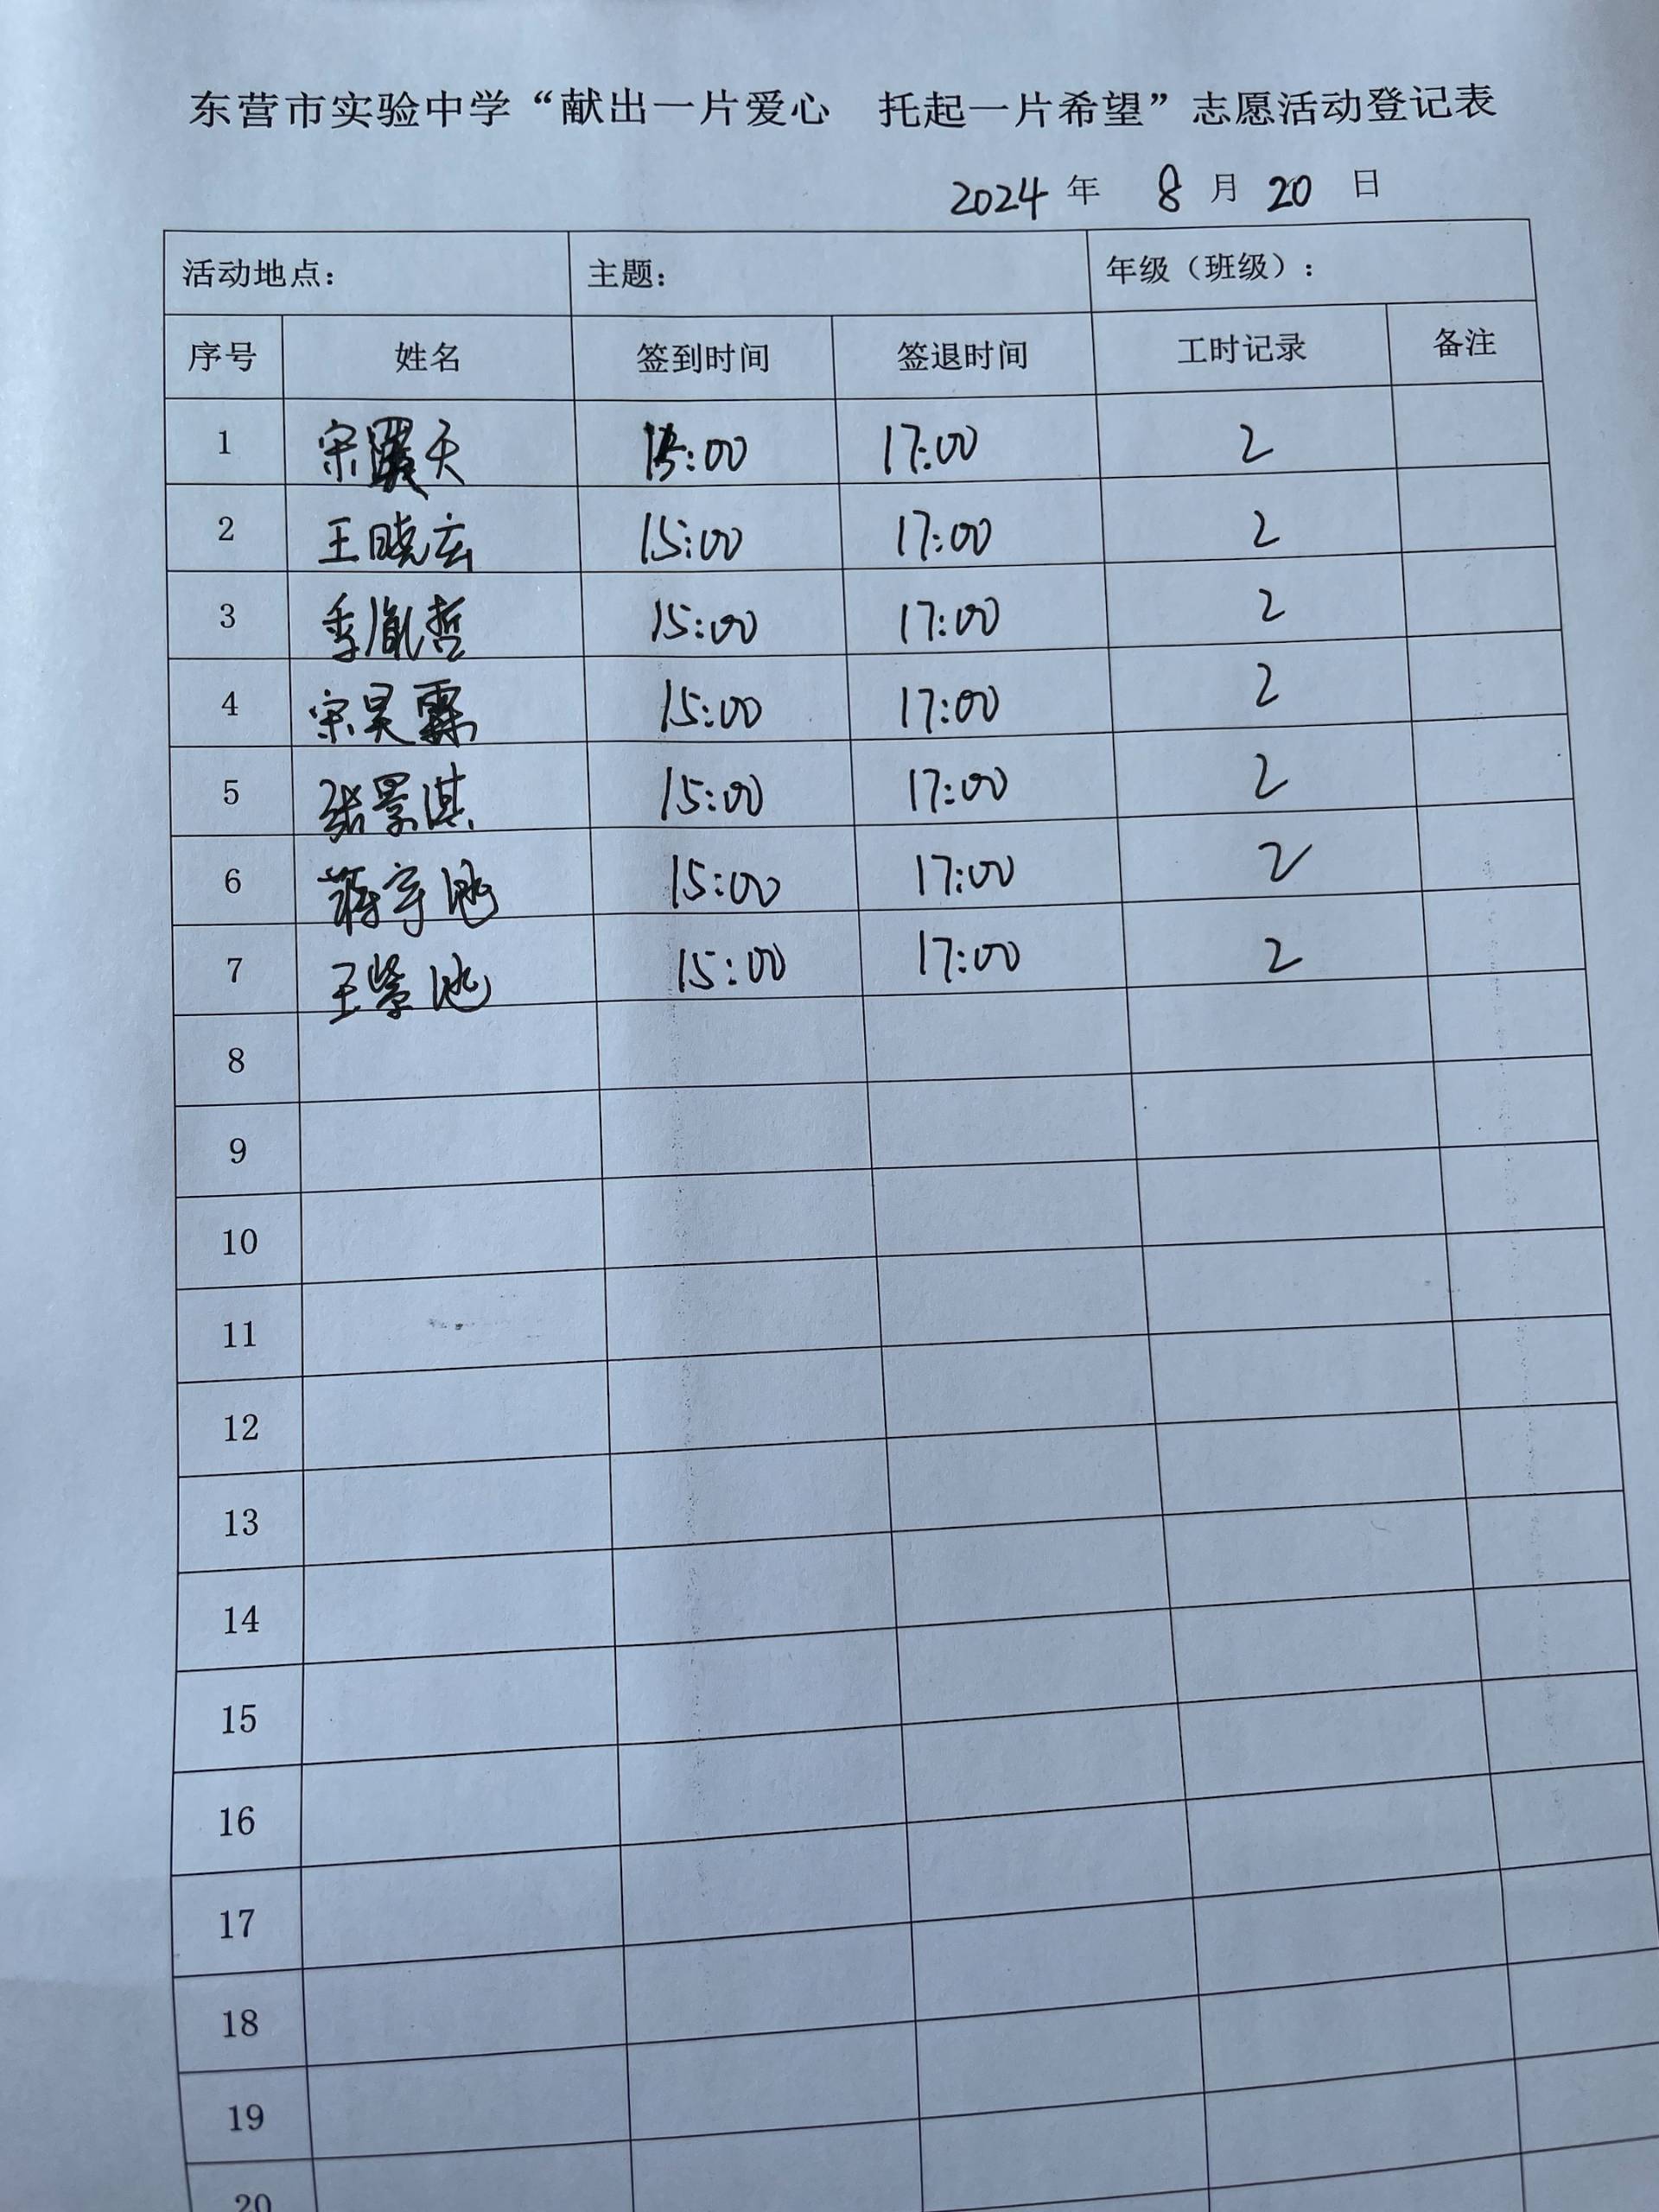 东营市实验中学“献出一片爱心 托起一片希望”志愿活动登记表
2024 年 8 月 20 日
活动地点： 主题： 年级（班级）：
序号 姓名 签到时间 签退时间 工时记录 备注
1 宋 天 15:00 17:00 2
2 王晓宏 15:00 17:00 2
3 季胤哲 15:00 17:00 2
4 宋昊霖 15:00 17:00 2
5 张景淇 15:00 17:00 2
6 蒋宇 15:00 17:00 2
7 王紫 15:00 17:00 2
8
9
10
11
12
13
14
15
16
17
18
19
20